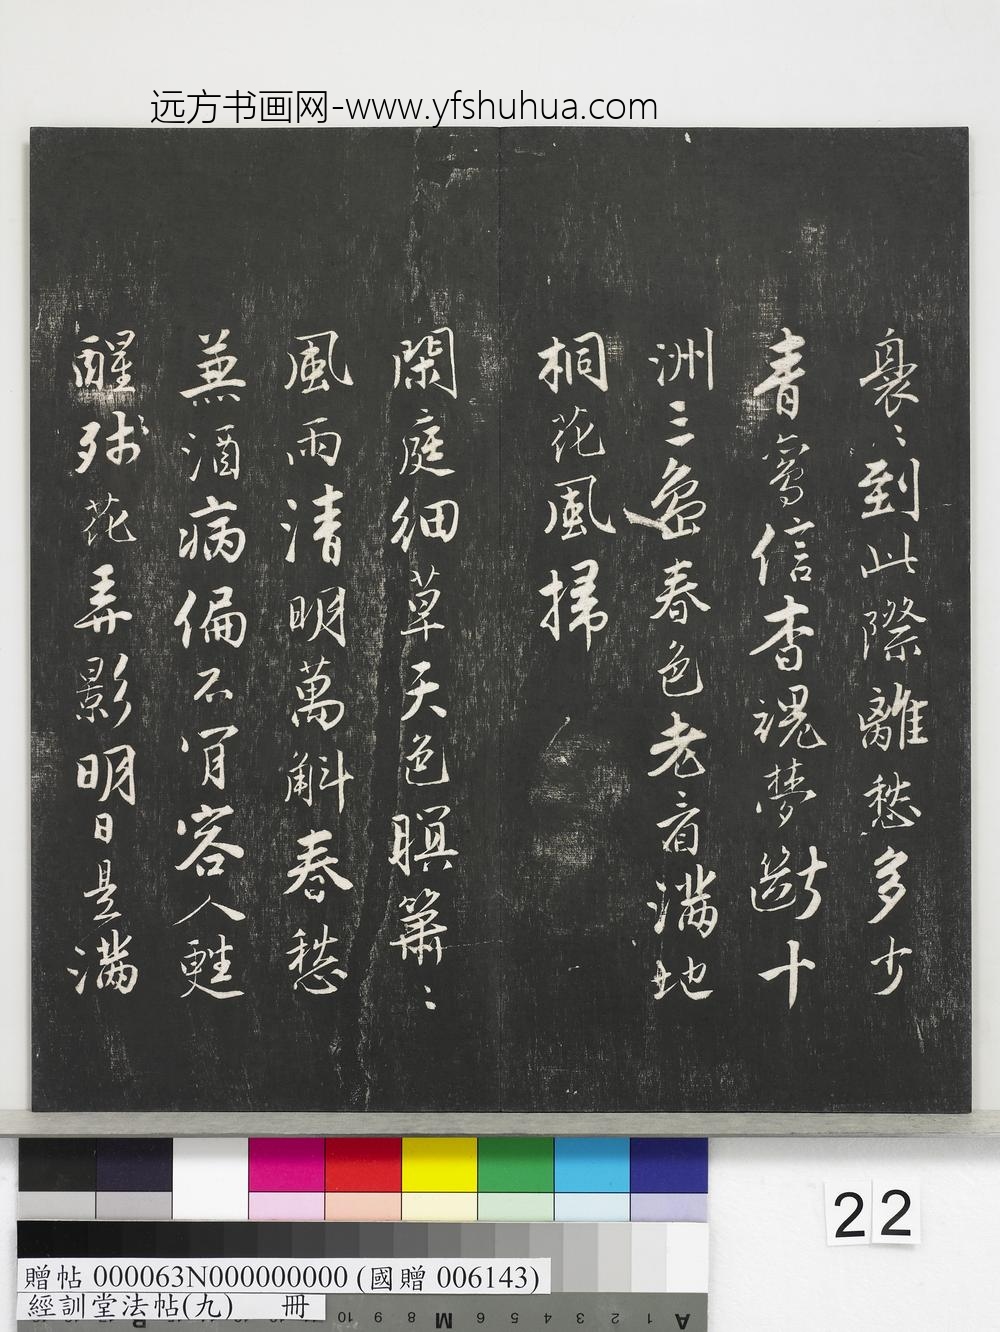 远方书画网-www.yfshuhua.com
裊〻到此際離愁多少
青鸞信杳魂夢斷十
洲三島春色老春滿地
桐花風掃
閑庭細草天色暝簫〻
風雨清明萬斛春愁
兼酒病偏不肯容人甦
醒殘花弄影明日是滿
22
贈帖 000063N000000000 (國贈 006143)
經訓堂法帖(九) 冊